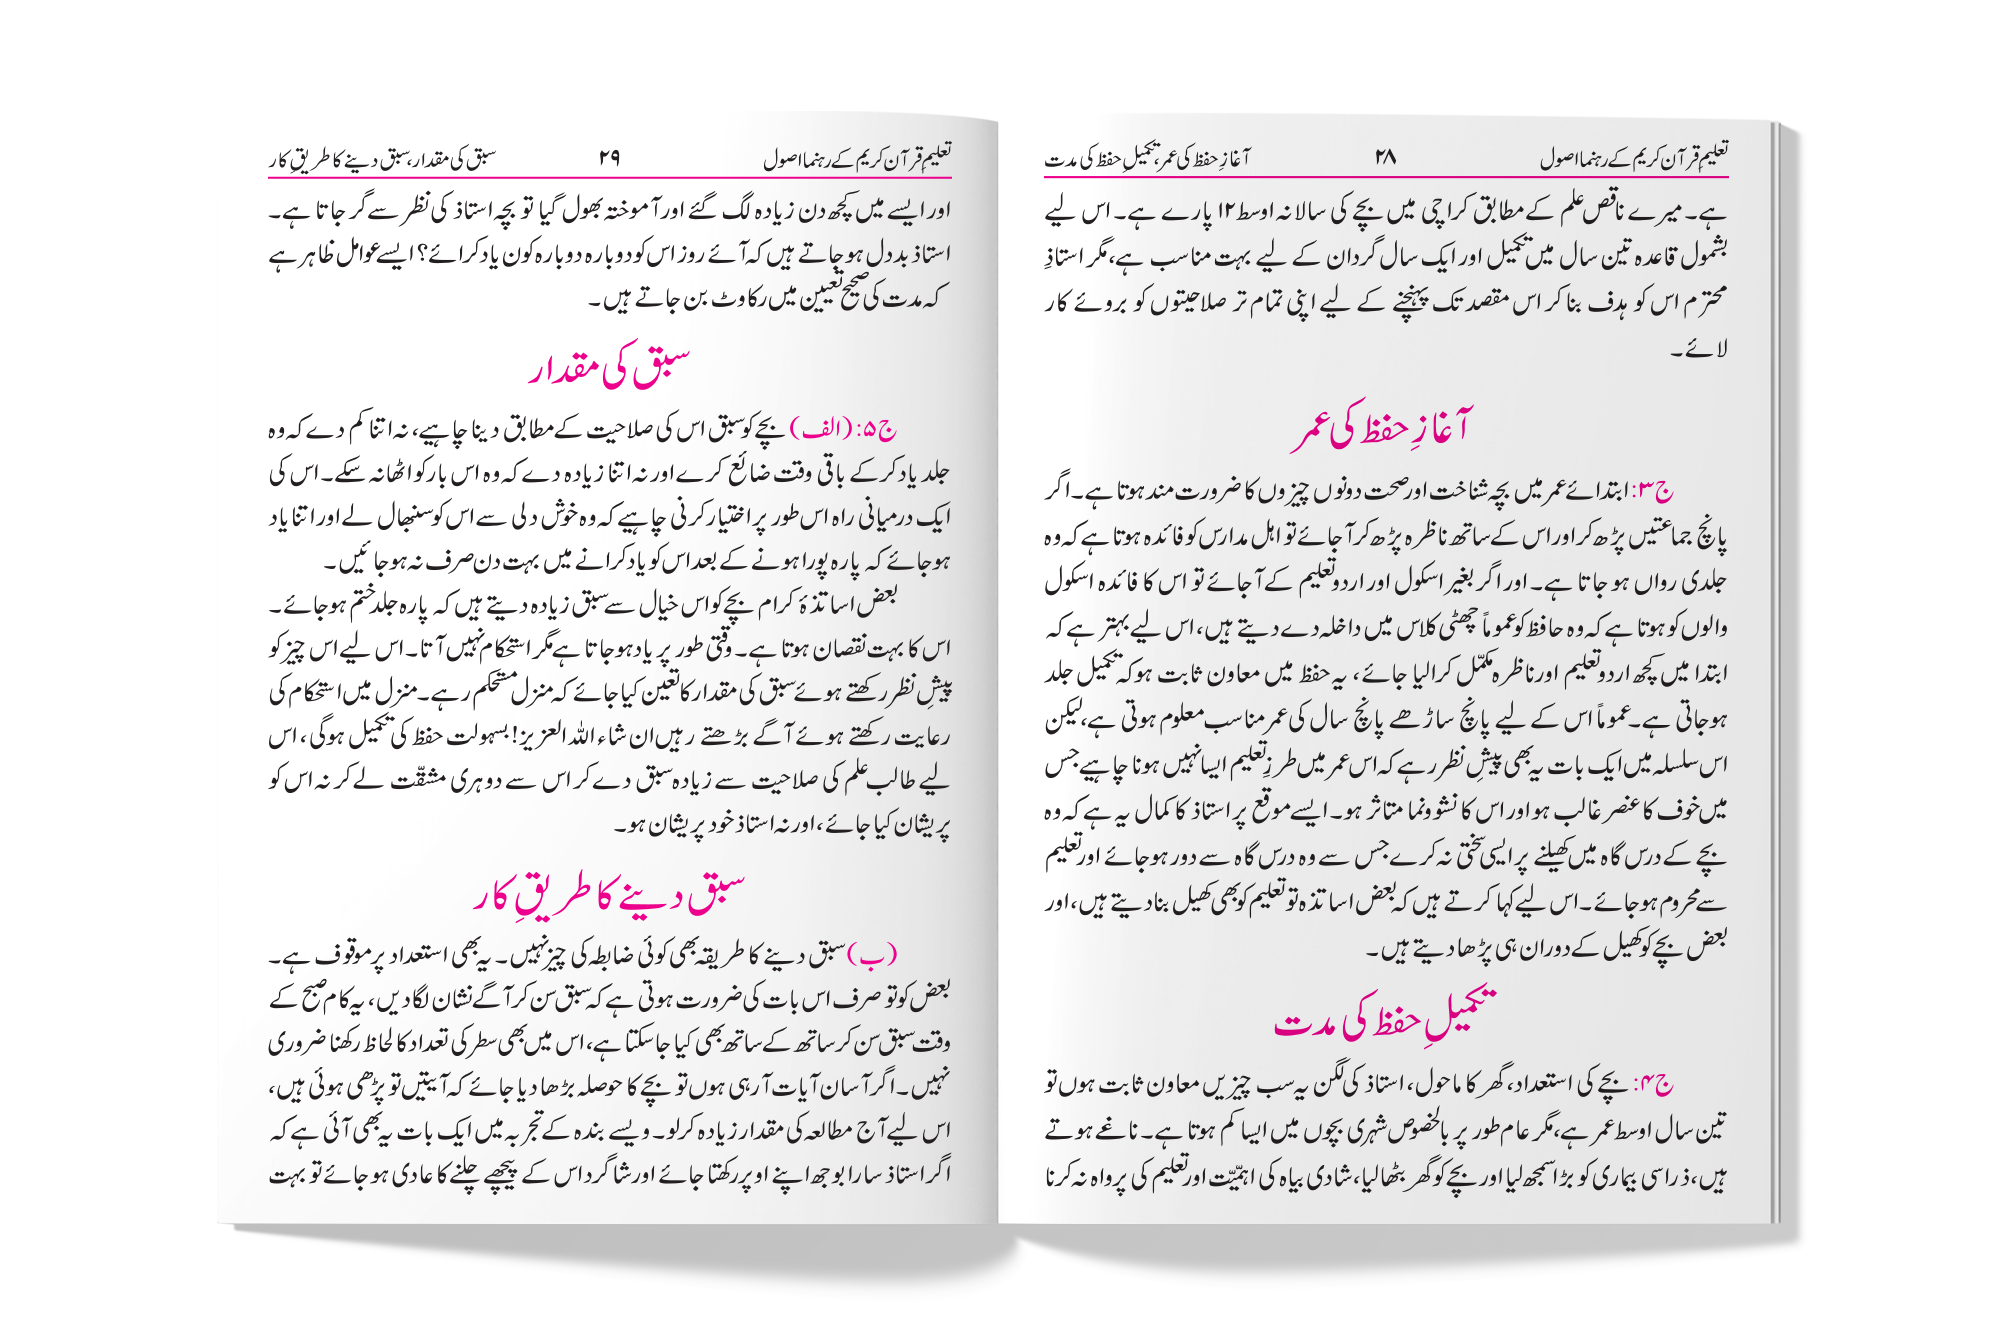 تعلیمِ قرآن کریم کے رہنما اصول ۲۸ آغازِ حفظ کی عمر، تکمیلِ حفظ کی مدت
ہے۔ میرے ناقص علم کے مطابق کراچی میں بچے کی سالانہ اوسط ۱۲ پارے ہے۔ اس لیے
بشمول قاعدہ تین سال میں تکمیل اور ایک سال گردان کے لیے بہت مناسب ہے، مگر استاذِ
محترم اس کو ہدف بنا کر اس مقصد تک پہنچنے کے لیے اپنی تمام تر صلاحیتوں کو بروئے کار
لائے۔
آغازِ حفظ کی عمر
ج۳: ابتدائے عمر میں بچہ شناخت اور صحت دونوں چیزوں کا ضرورت مند ہوتا ہے۔ اگر
پانچ جماعتیں پڑھ کر اور اس کے ساتھ ناظرہ پڑھ کر آجائے تو اہل مدارس کو فائدہ ہوتا ہے کہ وہ
جلدی رواں ہو جاتا ہے۔ اور اگر بغیر اسکول اور اردو تعلیم کے آجائے تو اس کا فائدہ اسکول
والوں کو ہوتا ہے کہ وہ حافظ کو عموماً چھٹی کلاس میں داخلہ دے دیتے ہیں، اس لیے بہتر ہے کہ
ابتدا میں کچھ اردو تعلیم اور ناظرہ مکمّل کرالیا جائے، یہ حفظ میں معاون ثابت ہو کہ تکمیل جلد
ہوجاتی ہے۔ عموماً اس کے لیے پانچ ساڑھے پانچ سال کی عمر مناسب معلوم ہوتی ہے، لیکن
اس سلسلہ میں ایک بات یہ بھی پیشِ نظر رہے کہ اس عمر میں طرزِ تعلیم ایسا نہیں ہونا چاہیے جس
میں خوف کا عنصر غالب ہو اور اس کا نشوونما متاثر ہو۔ ایسے موقع پر استاذ کا کمال یہ ہے کہ وہ
بچے کے درس گاہ میں کھیلنے پر ایسی سختی نہ کرے جس سے وہ درس گاہ سے دور ہوجائے اور تعلیم
سے محروم ہوجائے۔ اس لیے کہا کرتے ہیں کہ بعض اساتذہ تو تعلیم کو بھی کھیل بنا دیتے ہیں، اور
بعض بچے کو کھیل کے دوران ہی پڑھا دیتے ہیں۔
تکمیلِ حفظ کی مدت
ج۴: بچے کی استعداد، گھر کا ماحول، استاذ کی لگن یہ سب چیزیں معاون ثابت ہوں تو
تین سال اوسط عمر ہے، مگر عام طور پر بالخصوص شہری بچوں میں ایسا کم ہوتا ہے۔ ناغے ہوتے
ہیں، ذراسی بیماری کو بڑا سمجھ لیا اور بچے کو گھر بٹھالیا، شادی بیاہ کی اہمّیّت اور تعلیم کی پرواہ نہ کرنا
تعلیمِ قرآن کریم کے رہنما اصول ۲۹ سبق کی مقدار، سبق دینے کا طریقِ کار
اور ایسے میں کچھ دن زیادہ لگ گئے اور آموختہ بھول گیا تو بچہ استاذ کی نظر سے گر جاتا ہے۔
استاذ بددل ہو جاتے ہیں کہ آئے روز اس کو دوبارہ دوبارہ کون یاد کرائے؟ ایسے عوامل ظاہر ہے
کہ مدت کی صحیح تعیین میں رکاوٹ بن جاتے ہیں۔
سبق کی مقدار
ج۵: (الف) بچے کو سبق اس کی صلاحیت کے مطابق دینا چاہیے، نہ اتنا کم دے کہ وہ
جلد یاد کر کے باقی وقت ضائع کرے اور نہ اتنا زیادہ دے کہ وہ اس بار کو اٹھا نہ سکے۔ اس کی
ایک درمیانی راہ اس طور پر اختیار کرنی چاہیے کہ وہ خوش دلی سے اس کو سنبھال لے اور اتنا یاد
ہوجائے کہ پارہ پورا ہونے کے بعد اس کو یاد کرانے میں بہت دن صرف نہ ہوجائیں۔
بعض اساتذۂ کرام بچے کو اس خیال سے سبق زیادہ دیتے ہیں کہ پارہ جلد ختم ہوجائے۔
اس کا بہت نقصان ہوتا ہے۔ وقتی طور پر یاد ہو جاتا ہے مگر استحکام نہیں آتا۔ اس لیے اس چیز کو
پیشِ نظر رکھتے ہوئے سبق کی مقدار کا تعین کیا جائے کہ منزل مستحکم رہے۔ منزل میں استحکام کی
رعایت رکھتے ہوئے آگے بڑھتے رہیں ان شاء اللہ العزیز! بسہولت حفظ کی تکمیل ہوگی، اس
لیے طالب علم کی صلاحیت سے زیادہ سبق دے کر اس سے دوہری مشقّت لے کر نہ اس کو
پریشان کیا جائے، اور نہ استاذ خود پریشان ہو۔
سبق دینے کا طریقِ کار
(ب) سبق دینے کا طریقہ بھی کوئی ضابطہ کی چیز نہیں۔ یہ بھی استعداد پر موقوف ہے۔
بعض کو تو صرف اس بات کی ضرورت ہوتی ہے کہ سبق سن کر آگے نشان لگا دیں، یہ کام صبح کے
وقت سبق سن کر ساتھ کے ساتھ بھی کیا جاسکتا ہے، اس میں بھی سطر کی تعداد کا لحاظ رکھنا ضروری
نہیں۔ اگر آسان آیات آرہی ہوں تو بچے کا حوصلہ بڑھا دیا جائے کہ آیتیں تو پڑھی ہوئی ہیں،
اس لیے آج مطالعہ کی مقدار زیادہ کرلو۔ ویسے بندہ کے تجربہ میں ایک بات یہ بھی آئی ہے کہ
اگر استاذ سارا بوجھ اپنے اوپر رکھتا جائے اور شاگرد اس کے پیچھے چلنے کا عادی ہو جائے تو بہت